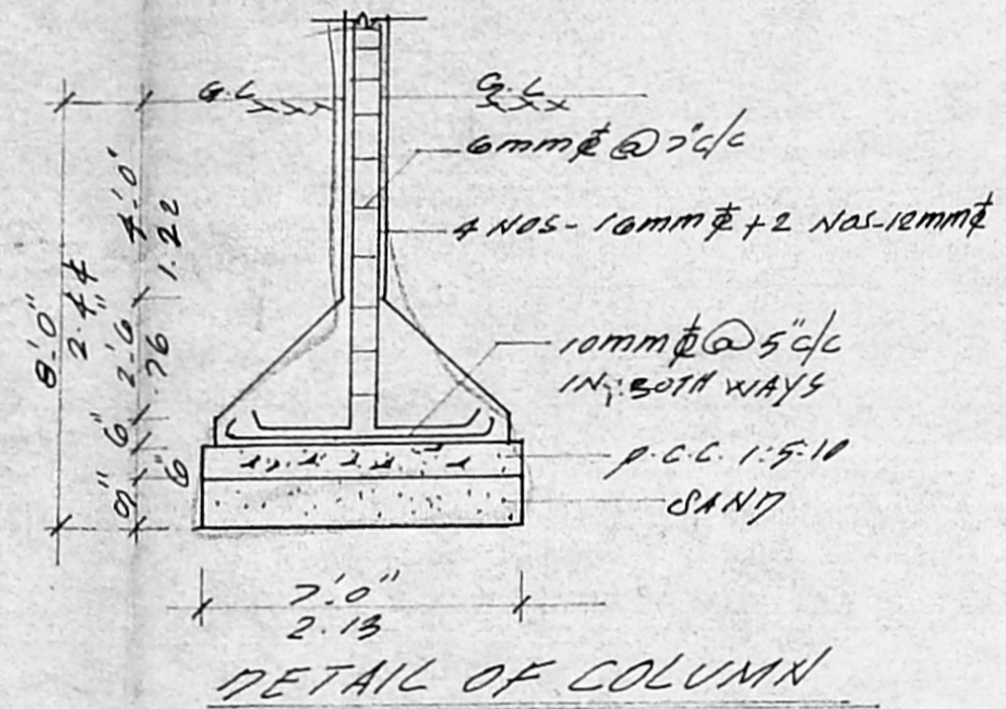 G.L
G.L
6mm⌀ @ 7"c/c
4 NOS - 16mm⌀ + 2 NOS - 12mm⌀
10mm⌀ @ 5"c/c
IN BOTH WAYS
P.C.C. 1:5:10
SAND
8'-0"
2.44
4'-0"
1.22
2'-6"
.76
6"
6"
9"
7'-0"
2.13
DETAIL OF COLUMN